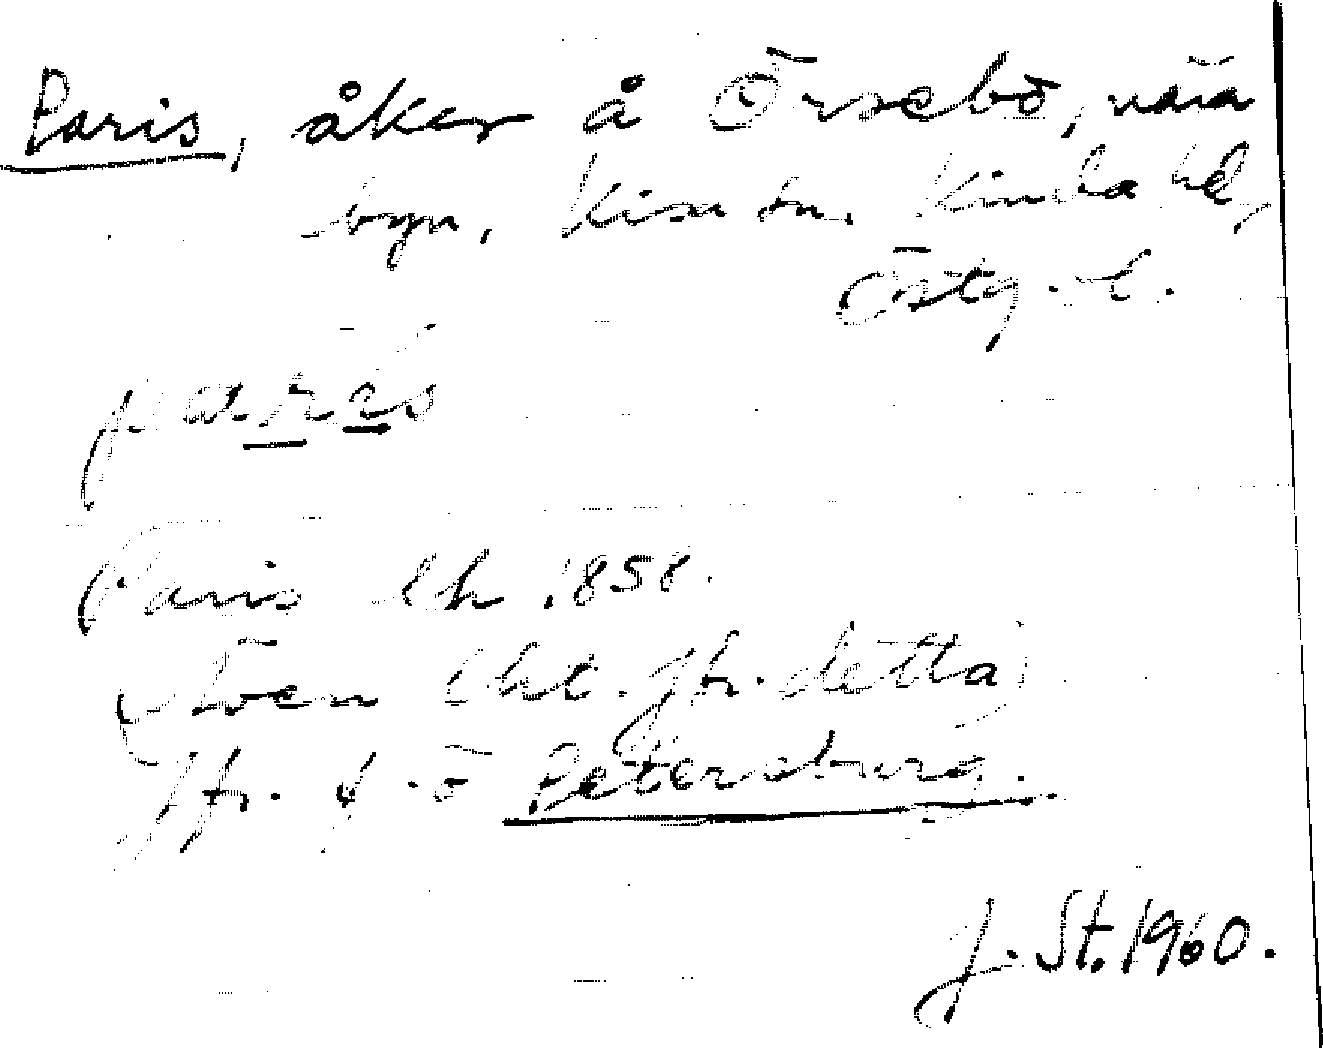 Paris, åker å Örsebo, nära
byn, Kisa sn. Kinda hd,
Östg. l.
paris
(Paris lh 1858.
Även lht. jfr. detta)
Jfr. f. ö Petersburg.
J. St. 1960.